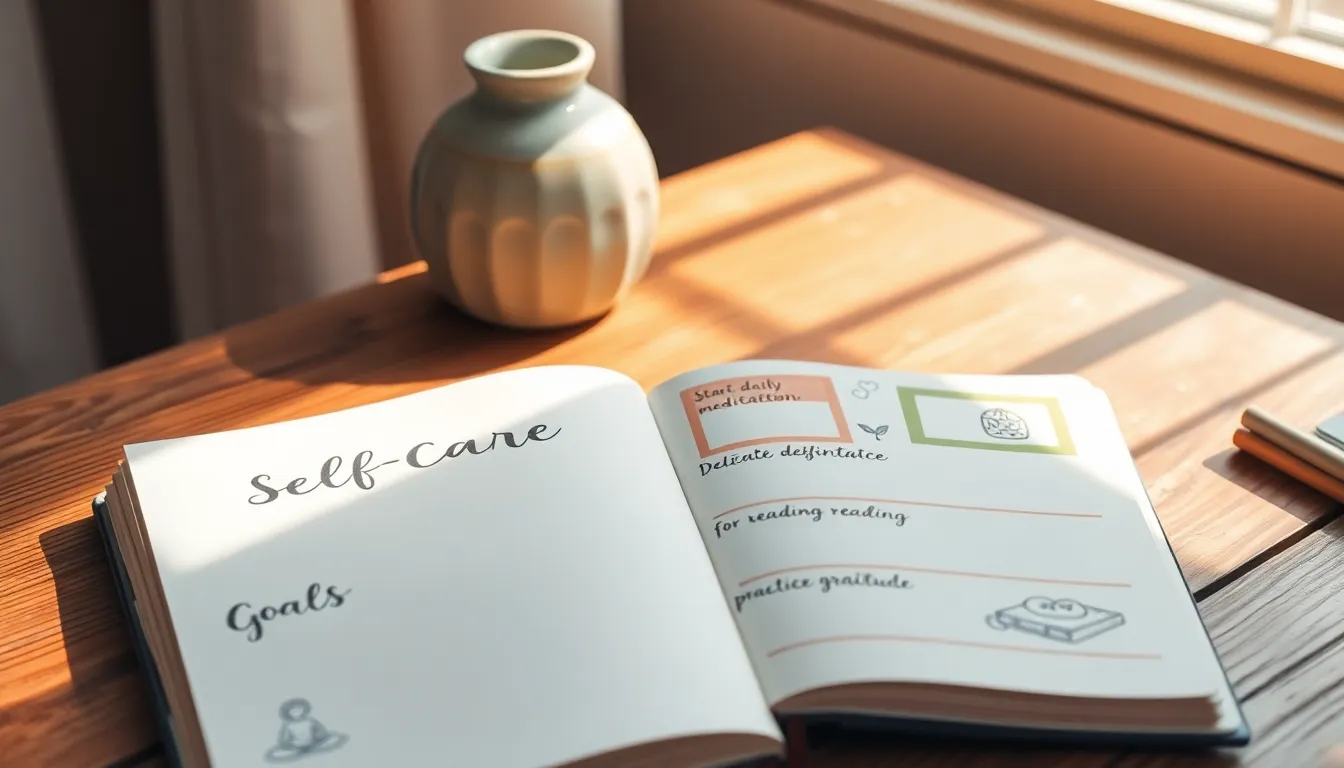 Self-Care
Goals
Start daily
medication
Delicate
for reading reading
practice gratitude